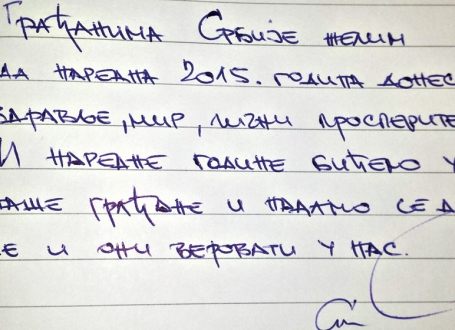 Грађанима Србије желим
да наредна 2015. година донес
здравље, мир, лични просперите
И наредне године бићемо у
наше грађане и надамо се д
е и они веровати у нас.